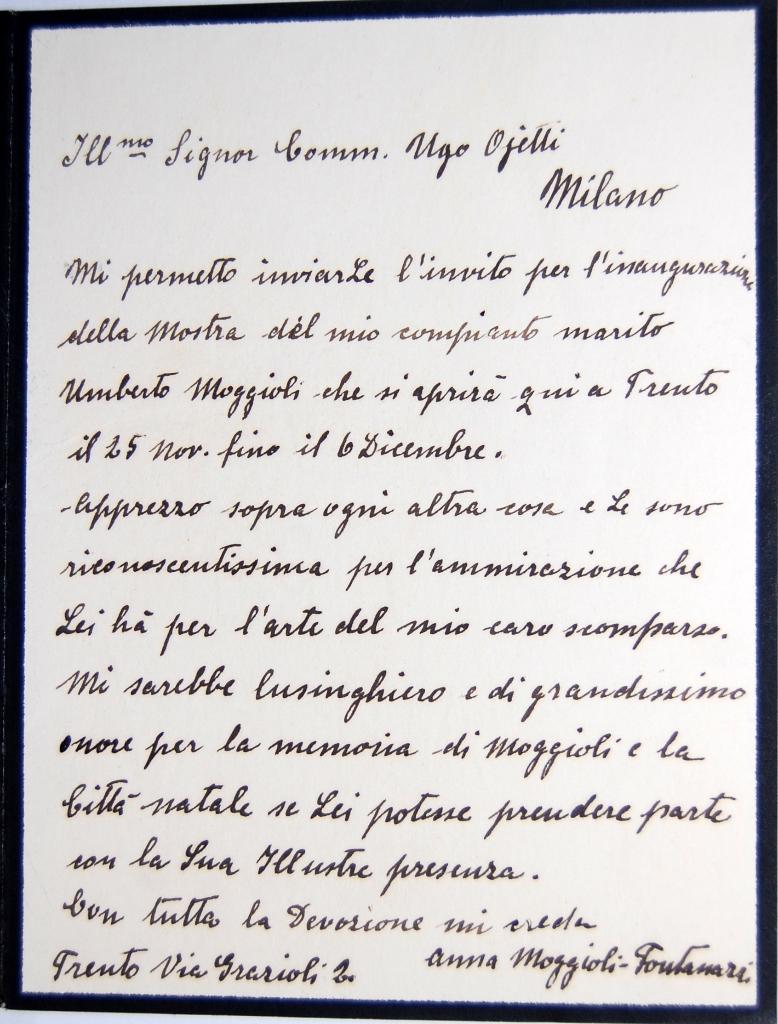 Ill^mo Signor Comm. Ugo Ojetti
Milano
Mi permetto inviarLe l'invito per l'inaugurazione
della Mostra dèl mio compianto marito
Umberto Moggioli che si aprirà qui a Trento
il 25 Nov. fino il 6 Dicembre.
Apprezzo sopra ogni altra cosa e Le sono
riconoscentissima per l'ammirazione che
Lei hà per l'arte del mio caro scomparso.
Mi sarebbe lusinghiero e di grandissimo
onore per la memoria di Moggioli e la
Città natale se Lei potesse prendere parte
con la Sua Illustre presenza.
Con tutta la Devozione mi creda
Anna Moggioli-Fontanari
Trento Via Grazioli 2.